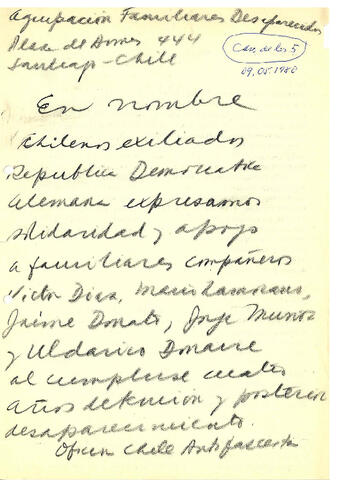 Agrupación Familiares Desaparecidos
Plaza de Armas 444
Santiago - Chile
Caso de los 5
09.05.1980
En nombre
chilenos exiliados
Republica Democratica
Alemana expresamos
solidaridad y apoyo
a familiares compañeros
Victor Diaz, Mario Zamorano,
Jaime Donato, Jorge Muñoz
y Uldarico Donaire
al cumplirse cuatro
años detencion y posterior
desaparecimiento.
Oficina Chile Antifascista